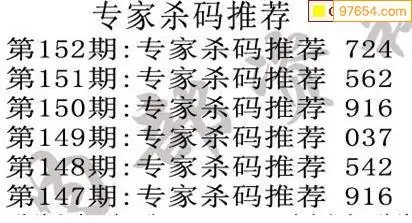 专家杀码推荐
97654.com
第152期:专家杀码推荐 724
第151期:专家杀码推荐 562
第150期:专家杀码推荐 916
第149期:专家杀码推荐 037
第148期:专家杀码推荐 542
第147期:专家杀码推荐 916